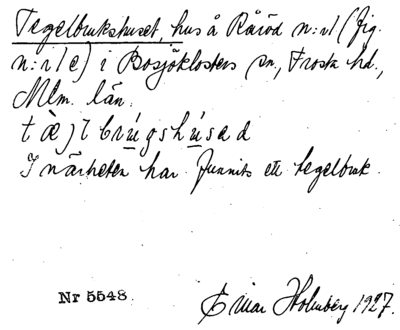 Tegelbrukshuset, hus å Råröd n:r 1 (fig.
n:r 1 e) i Bosjöklosters sn, Frosta hd.,
Mlm. län.
I närheten har funnits ett tegelbruk.
Nr 5548
Einar Holmberg 1927.